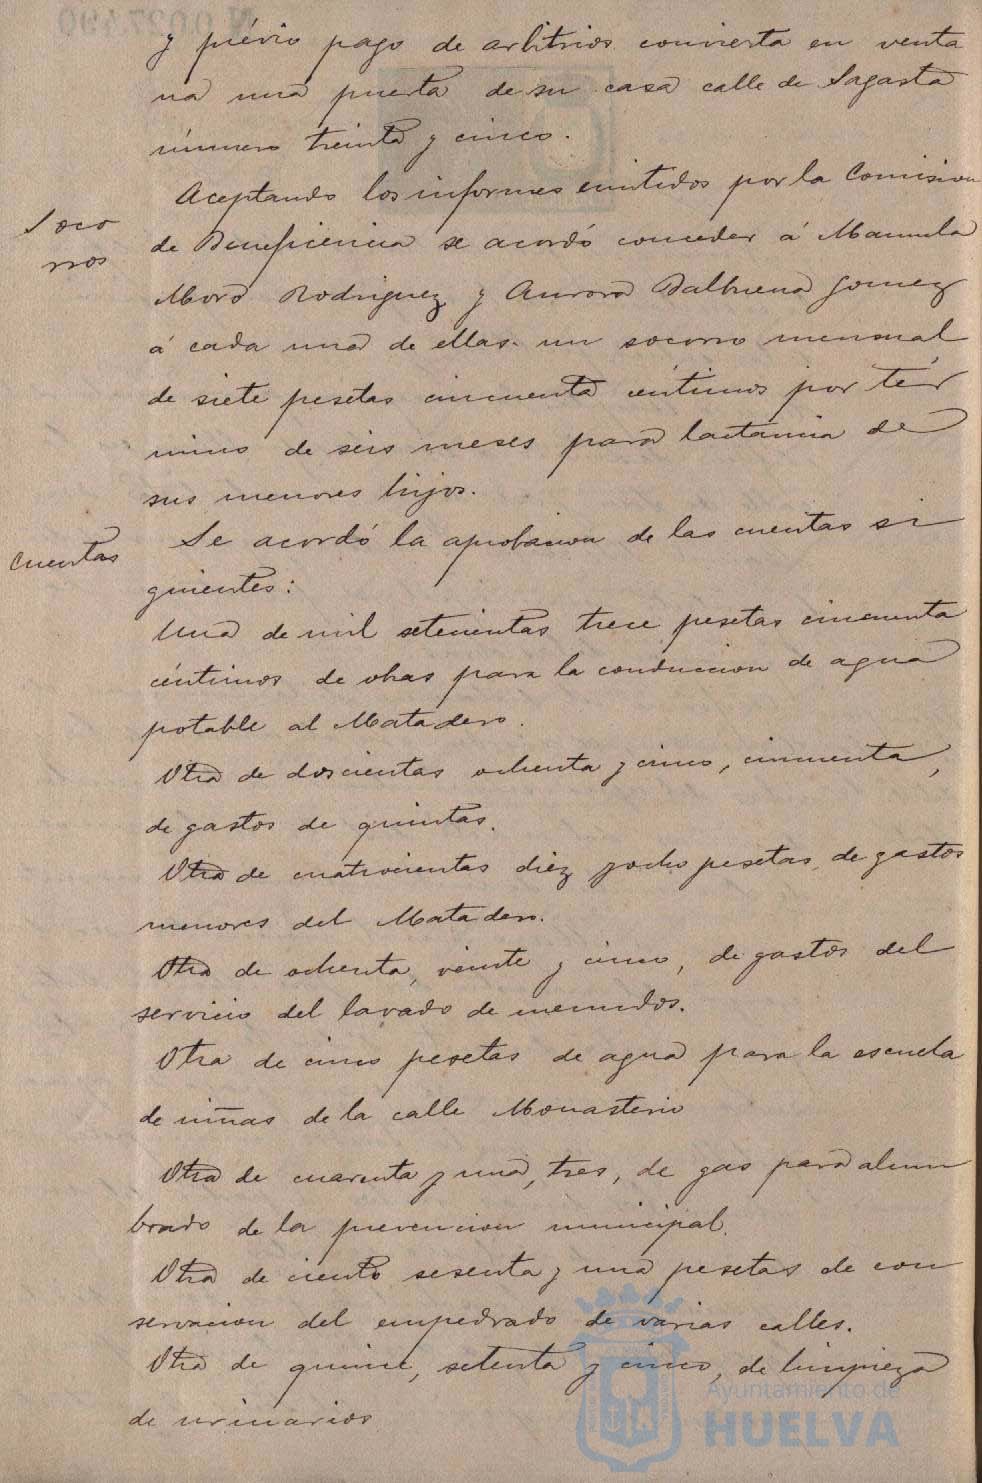 N 0027490
y prévio pago de arbitrios convierta en venta
na una puerta de su casa calle de Sagasta
número treinta y cinco.
Aceptando los informes emitidos por la Comision
Soco
rros
de Beneficencia se acordó conceder á Manuela
Moro Rodriguez y Aurora Balbuena Gomez
á cada una de ellas un socorro mensual
de siete pesetas cincuenta céntimos por tér
mino de seis meses para lactancia de
sus menores hijos.
Cuentas
Se acordó la aprobacion de las cuentas si
guientes:
Una de mil setecientas trece pesetas cincuenta
céntimos de obras para la conduccion de agua
potable al Matadero.
Otra de doscientas ochenta y cinco, cincuenta,
de gastos de quintas.
Otra de cuatrocientas diez y ocho pesetas, de gastos
menores del Matadero.
Otra de ochenta, veinte y cinco, de gastos del
servicio del lavado de menudos.
Otra de cinco pesetas de agua para la escuela
de niñas de la calle Monasterio
Otra de cuarenta y una, tres, de gas para alum
brado de la prevencion municipal.
Otra de ciento sesenta y una pesetas de con
servacion del empedrado de varias calles.
Otra de quince, setenta y cinco, de limpieza
de urinarios
Ayuntamiento de
HUELVA